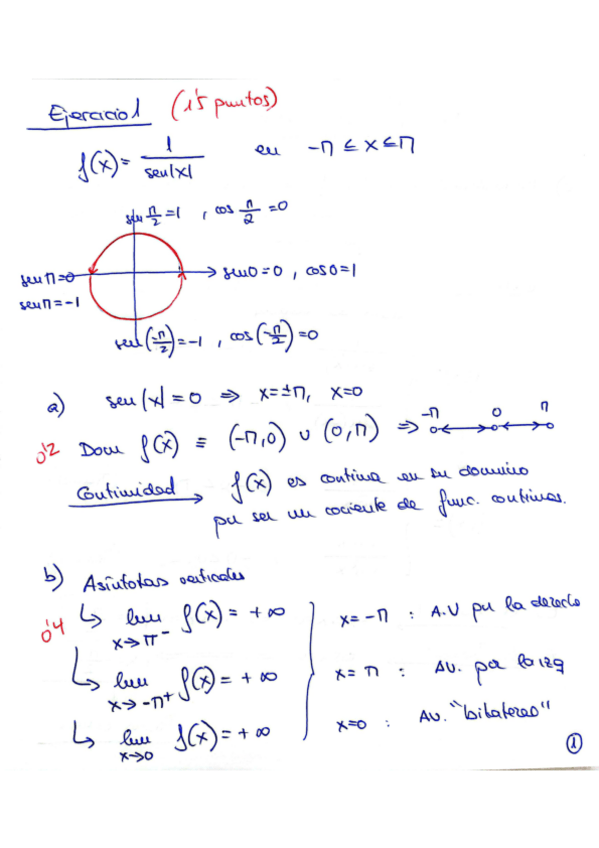 Ejercicio 1 (1'5 puntos)
f(x) = 1/sen|x| en -π ≤ x ≤ π
sen π/2 = 1 , cos π/2 = 0
sen π = 0
sen π = -1
sen 0 = 0 , cos 0 = 1
sen(-π/2) = -1 , cos(-π/2) = 0
a) sen|x| = 0 ⇒ x = ±π, x = 0
0'2 Dom f(x) ≡ (-π,0) ∪ (0,π) ⇒ -π 0 π
Continuidad → f(x) es continua en su dominio
por ser un cociente de func. continuas.
b) Asíntotas verticales
0'4 ↳ lim x→π⁻ f(x) = +∞ x = -π : A.V por la derecha
↳ lim x→-π⁺ f(x) = +∞ x = π : AV. por la izq
↳ lim x→0 f(x) = +∞ x=0 : AV. "bilateral"
1